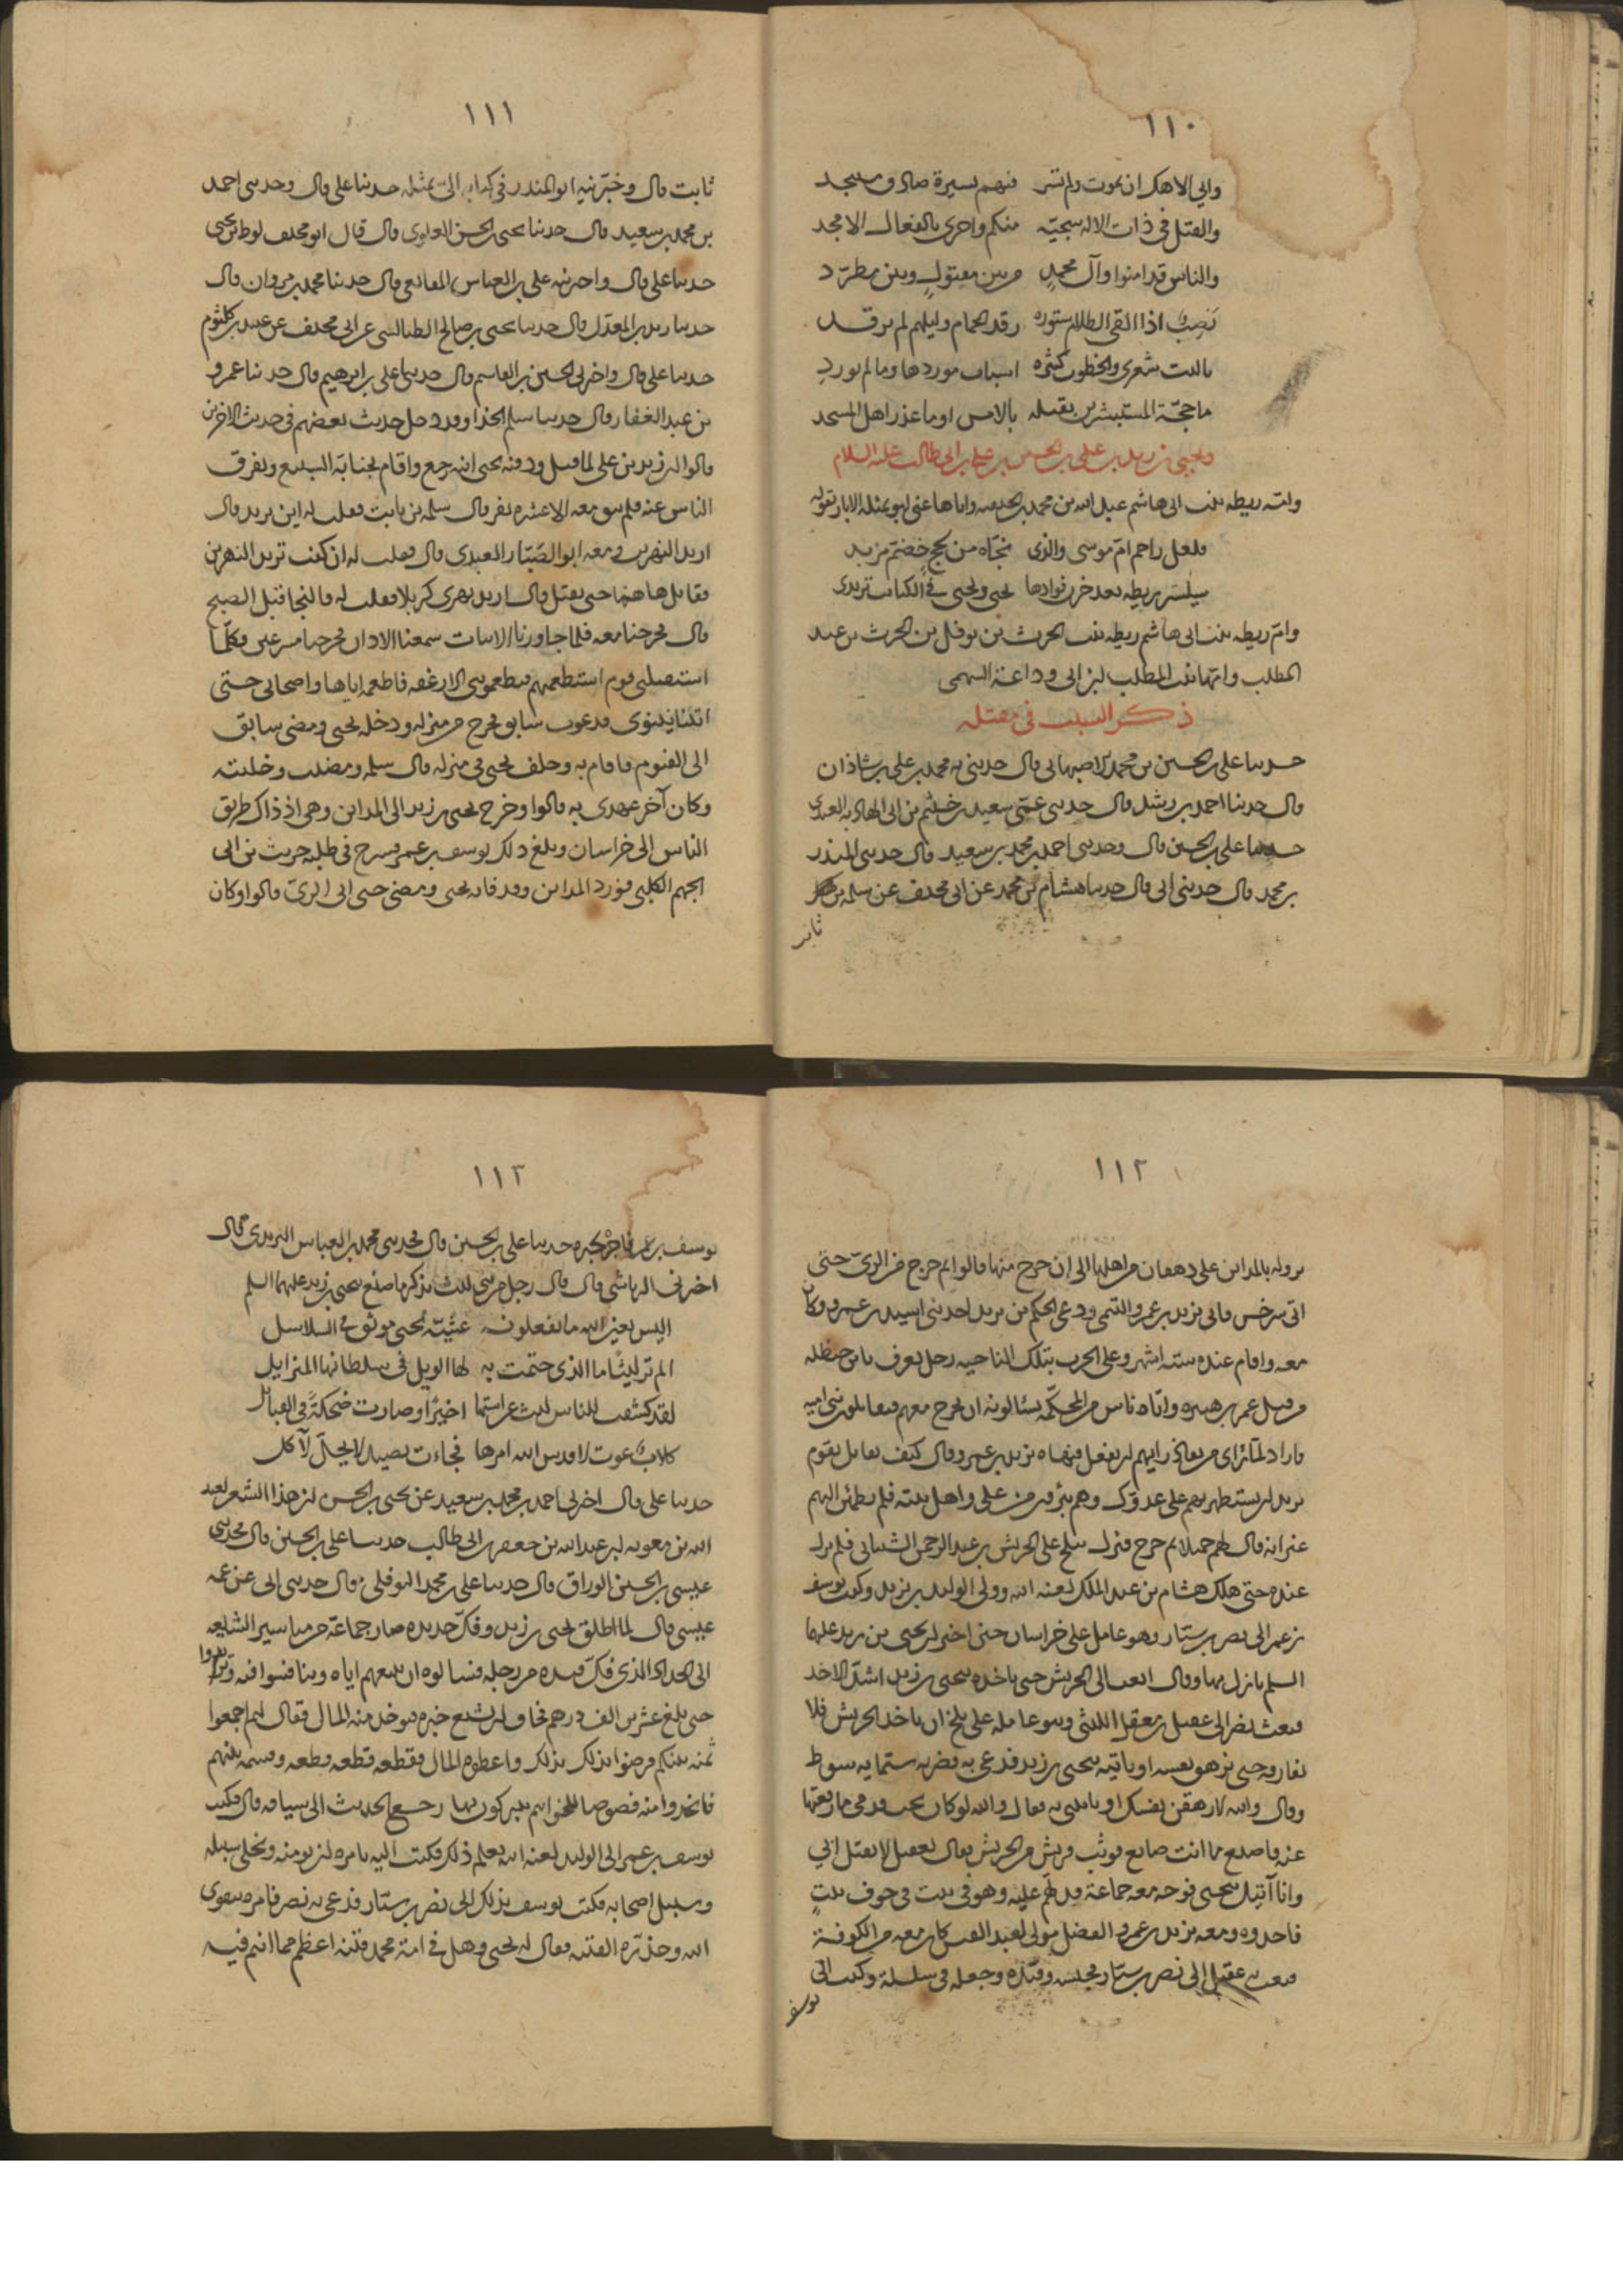 ١١٠
واني الاهك ان يموت ولم تسر فيهم بسيرة صادق مستنجد
والقتل في ذات الاله سجيّة منكم واحرى بالفعال الامجد
والناس قد امنوا وآل محمدٍ من بين مقتولٍ وبين مطرّد
نصبٌ اذا القى الظلام ستوره رقد الحمام وليلهم لم يرقد
ياليت شعرى والخطوب كثيره اسباب موردها وما لم يورد
ما حجّة المستبشرين بقتله بالامس او ما عذر اهل المسجد
ويحيى بن زيد بن على بن الحسين بن علي بن ابي طالب عليه السلام
وامّه ريطه بنت ابى هاشم عبد الله بن محمد بن الحنفيه واياها عنى ابو بمثله الابار بقوله
فلعل راحم ام موسى والذى نجّاه من لجج خضمّ مزبد
سيسر ريطه بعد حزن فوادها يحيى ويحيى في الكتاب يرتدى
وامّ ريطه بنت ابى هاشم ريطه بنت الحرث بن نوفل بن الحرث بن عبد
المطلب وامّها بنت المطلب بن ابى وداعة السهمى
ذكر السبب في مقتله
حدثنا على بن الحسين بن محمد الاصبهانى قال حدثنى به محمد بن على بن شاذان
قال حدثنا احمد بن رشد قال حدثنى عمّى سعيد بن خيثم بن ابى الهاديه العبدى
حدثنا على بن الحسين قال وحدثنى احمد بن محمد بن سعيد قال حدثنى المنذر
بن محمد قال حدثنى ابى قال حدثنا هشام بن محمد عن ابى مخنف عن سلمه بن
ثابت
١١١
ثابت قال وخبّرنيه ابو المنذر في كتابه الىّ بمثله حدثنا على قال وحدثنى احمد
بن محمد بن سعيد قال حدثنا يحيى بن الحسن العلوى قال قال ابو مخنف لوط بن يحيى
حدثنا على قال واخبرنيه على بن العباس المقانعى قال حدثنا محمد بن مروان قال
حدثنا زيد بن المعذّل قال حدثنا يحيى بن صالح الطيالسى عن ابى مخنف عن عبيد بن كلثوم
حدثنا على قال واخبرنى الحسين بن القاسم قال حدثنى على بن ابرهيم قال حدثنا عمرو
بن عبد الغفار قال حدثنا سلم الحذا وقد دخل حديث بعضهم في حديث الاخرين
قالوا ان زيد بن على لما قتل ودفنه يحيى ابنه رجع واقام بجبّانة السبيع وتفرق
الناس عنه فلم يبق معه الا عشره نفر قال سلمه بن ثابت فقلت له اين تريد قال
اريد النهرين ومعه ابو الصّبّار العبدى قال فقلت له ان كنت تريد النهرين
فقاتل هاهنا حتى نقتل قال اريد نهرى كربلا فقلت له فالنجا قبل الصبح
قال فخرجنا معه فلما جاوزنا الابيات سمعنا الاذان فخرجنا مسرعين فكلّما
استقبلنى قوم استطعمتهم فيطعمونى الارغفه فاطعمه اياها واصحابى حتى
اتينا نينوى فدعوت سابق فخرج من منزله ودخله يحيى ومضى سابق
الى الفيّوم فاقام به وخلف يحيى في منزله قال سلمه ومضيت وخليته
وكان آخر عهدى به قالوا وخرج يحيى بن زيد الى المداين وهى اذ ذاك طريق
الناس الى خراسان وبلغ ذلك يوسف بن عمر فسرح في طلبه حريث بن ابى
الجهم الكلبى فورد المداين وقد فاته يحيى ومضى حتى اتى الرى قالوا وكان
١١٢
نزوله بالمداين على دهقان من اهلها الى ان خرج منها قالوا ثم خرج من الرى حتى
اتى سرخس فاتى يزيد بن عمرو التيمى ودعى الحكم بن يزيد احد بنى اسيد بن عمرو وكان
معه واقام عنده ستة اشهر وعلى الحرب بتلك الناحيه رجل يعرف بابن حنظله
من قبل عمر بن هبيره واتاه ناس من المحكّمه يسئالونه ان يخرج معهم فيقاتلون بنى اميه
فاراد لما راى من نفاذ رايهم ان يفعل فنهاه يزيد بن عمرو وقال كيف تقاتل بقوم
تريد ان تستظهر بهم على عدوّك وهم يتبرؤن من على واهل بيته فلم يطمئن اليهم
غير انه قال لهم جميلا ثم خرج فنزل ببلخ على الحريش بن عبد الرحمن الشيبانى فلم يزل
عنده حتى هلك هشام بن عبد الملك لعنه الله وولى الوليد بن يزيد وكتب يوسف
بن عمر الى نصر بن سيّار وهو عامل على خراسان حين اخبر ان يحيى بن زيد عليهما
السلم نازل بها وقال ابعث الى الحريش حتى ياخذه بيحيى بن زيد اشدّ الاخذ
فبعث نصر الى عقيل بن معقل الليثى وهو عامله على بلخ ان ياخذ الحريش فلا
يفارقه حتى تزهق نفسه او ياتيه بيحيى بن زيد فدعى به فضربه ستماية سوط
وقال والله لازهقن نفسك او تاتينى به فقال والله لو كان تحت قدمى ما رفعتها
عنه فاصنع ما انت صانع فوثب قريش بن الحريش فقال لعقيل لا تقتل ابى
وانا آتيك بيحيى فوجه معه جماعة فدلّهم عليه وهو فى بيت فى جوف بيتٍ
فاخذوه ومعه يزيد بن عمرو الفضل مولى لعبد القيس كان معه من الكوفة
فبعث به عقيل الى نصر بن سيّار فحبسه وقيّده وجعله فى سلسلة وكتب الى
يوسف
١١٣
يوسف بن عمر فاخبره بخبره حدثنا على بن الحسين قال فحدثنى محمد بن العباس اليزيدى قال
اخبرنى الرياشى قال قال رجل من بنى ليث يذكر ما صنع بيحيى بن زيد عليهما السلم
اليس بعين الله ما تفعلونه عشيّة يحيى موثق في السلاسل
الم تر ليثًا ما الذى حتمت به لها الويل فى سلطانها المتزايل
لقد كشفت للناس ليث عن استها اخيرًا وصارت ضحكةً فى القبائل
كلابٌ عوت لا قدس الله امرها فجاءت بصيد لا يحلّ لآكل
حدثنا على قال اخبرنى احمد بن محمد بن سعيد عن يحيى بن الحسن ان هذا الشعر لعبد
الله بن معويه بن عبد الله بن جعفر بن ابى طالب حدثنا على بن الحسين قال فحدثنى
عيسى بن الحسين الوراق قال حدثنا على بن محمد النوفلى قال حدثنى ابى عن عمه
عيسى قال لما اطلق يحيى بن زيد وفكّ حديده صار جماعة من مياسير الشيعه
الى الحداد الذى فكّ قيده من رجله فسالوه ان يبيعهم اياه وتنافسوا فيه وتزايدوا
حتى بلغ عشرين الف درهم فخاف ان يشيع خبره فيوخذ منه المال فقال لهم اجمعوا
ثمنه بينكم فرضوا بذلك بذلك واعطوه المال فقطعه قطعه قطعه وقسمه بينهم
فاتخذوا منه فصوصا للخواتيم يتبركون بها رجع الحديث الى سياقه قال فكتب
يوسف بن عمر الى الوليد لعنه الله يعلم ذلك فكتب اليه يامره ان يومنه ويخلى سبيله
وسبيل اصحابه فكتب يوسف بذلك الى نصر بن سيّار فدعى به نصر فامره بتقوى
الله وحذّره الفتنه فقال له يحيى وهل في امة محمد فتنه اعظم مما انتم فيه